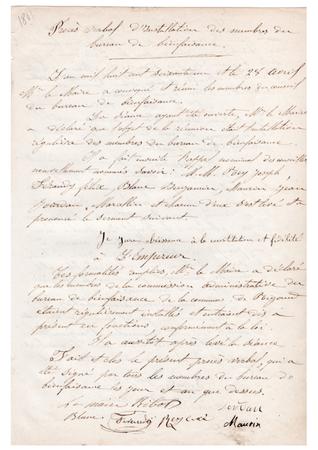 Procès verbal d'Installation des membres du
bureau de bienfaisance.
L'an mil huit cent soixante et le 28 avril
Mr le Maire a convoqué et réuni les membres du conseil
du bureau de bienfaisance.
La séance ayant été ouverte, Mr le Maire
a déclaré que l'objet de la réunion était l'installation
régulière des membres du bureau de bienfaisance.
Il a fait ensuite l'appel nominal des conseillers
nouvellement nommés savoir: M. M. Rey Joseph,
Féraud félix, Blanc Benjamin, Maurin Jean
et chacun d'eux s'est levé et a
prononcé le serment suivant.
Je jure obéissance à la constitution et fidélité
à L'Empereur.
Ces formalités remplies, Mr le Maire a déclaré
que les membres de la commission administrative du
bureau de bienfaisance de la commune de
étaient régulièrement installés et entraient dès à
présent en fonctions conformément à la loi.
Il a aussitôt après levé la séance.
Fait et clos le présent procès verbal, qui a
été signé par tous les membres du bureau de
bienfaisance les jour et an que dessus.
Le maire
Blanc Féraud Rey
Maurin